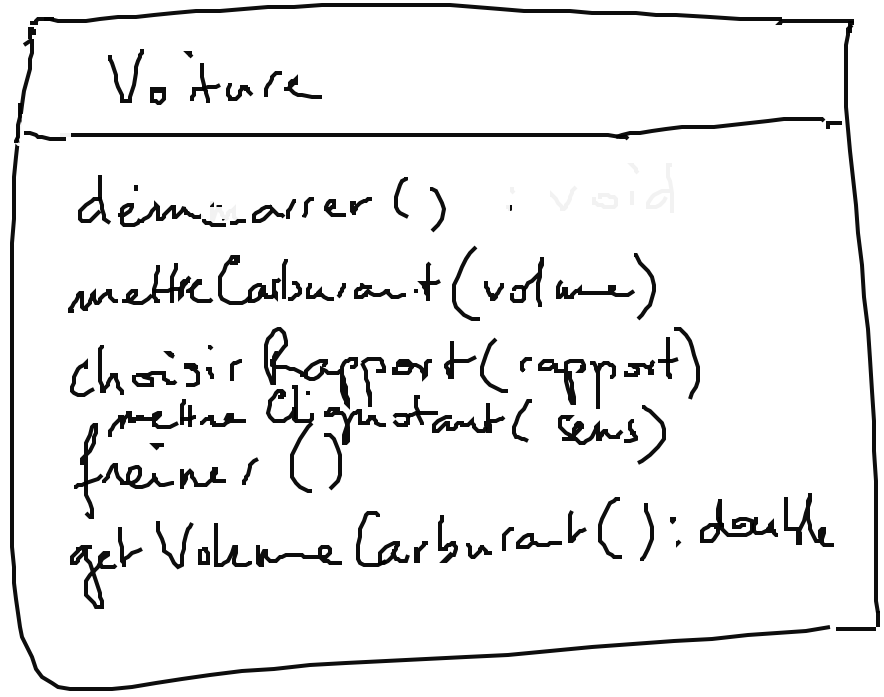 Voiture
démarrer() : void
mettreCarburant(volume)
choisirRapport(rapport)
mettreClignotant(sens)
freiner()
getVolumeCarburant() : double